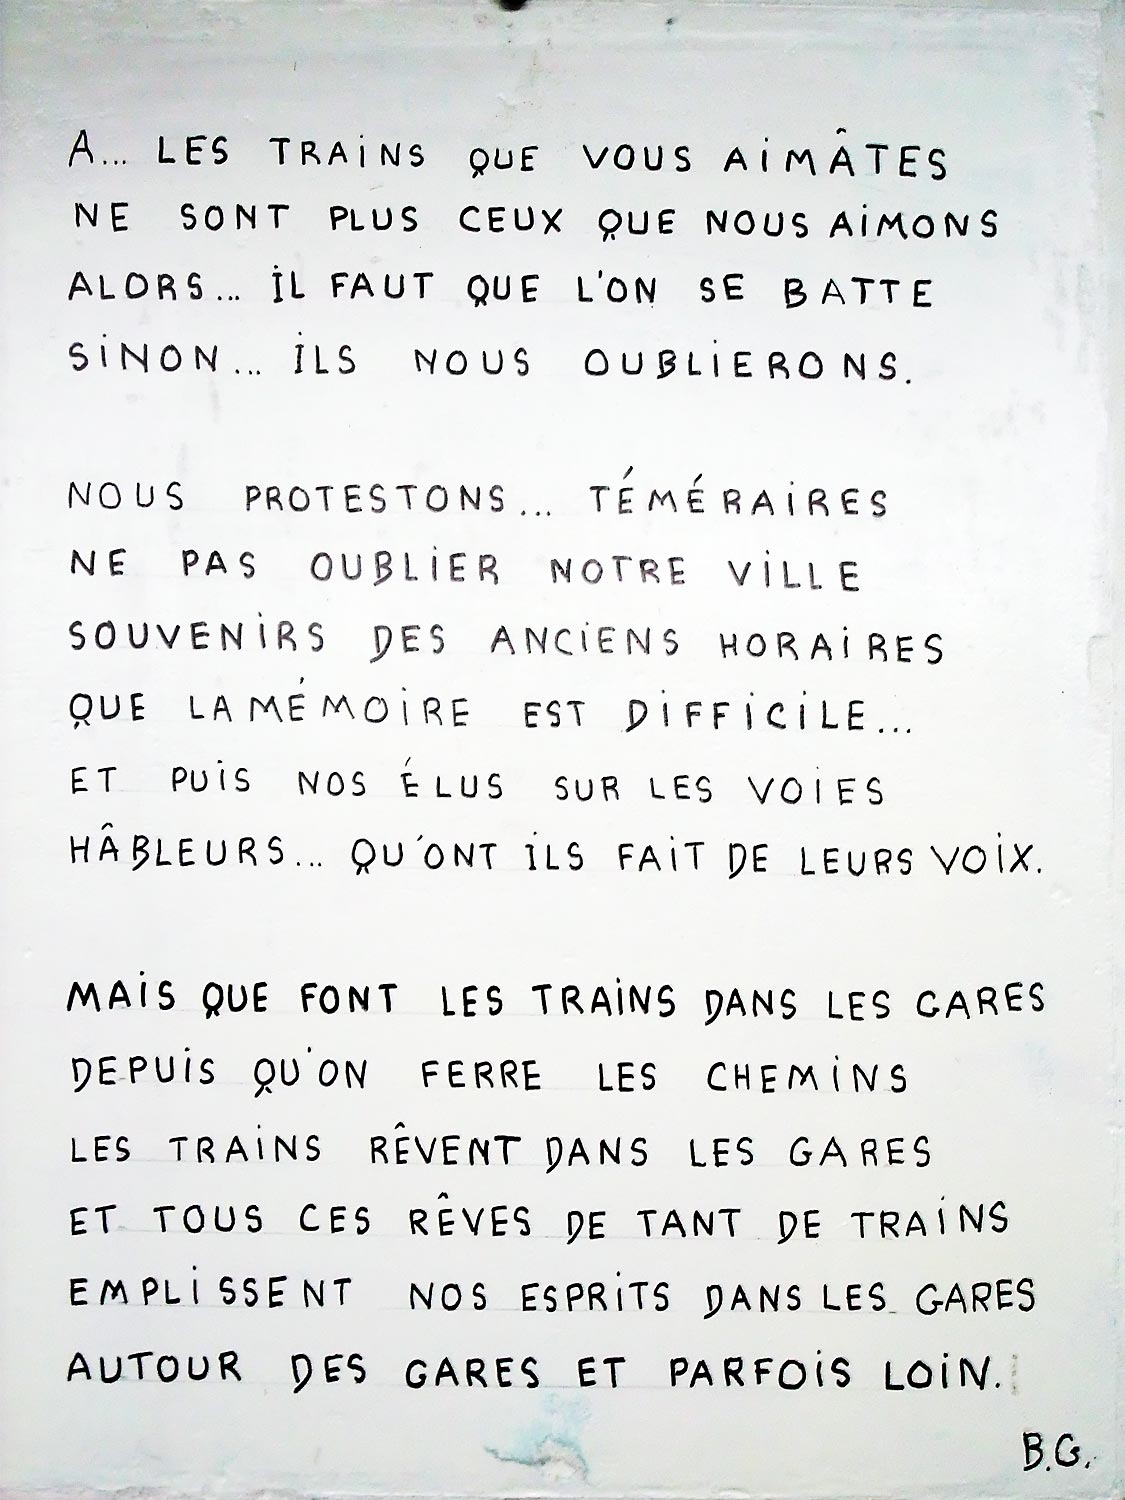 A... LES TRAiNS QUE VOUS AiMÂTES
NE SONT PLUS CEUX QUE NOUS AiMONS
ALORS... iL FAUT QUE L'ON SE BATTE
SiNON... iLS NOUS OUBLiERONS.
NOUS PROTESTONS... TÉMÉRAiRES
NE PAS OUBLiER NOTRE ViLLE
SOUVENiRS DES ANCiENS HORAiRES
QUE LA MÉMOiRE EST DiFFiCiLE...
ET PUiS NOS ÉLUS SUR LES VOiES
HÂBLEURS... QU'ONT iLS FAiT DE LEURS VOiX.
MAiS QUE FONT LES TRAiNS DANS LES GARES
DEPUiS QU'ON FERRE LES CHEMiNS
LES TRAiNS RÊVENT DANS LES GARES
ET TOUS CES RÊVES DE TANT DE TRAiNS
EMPLiSSENT NOS ESPRiTS DANS LES GARES
AUTOUR DES GARES ET PARFOiS LOiN.
B.G.